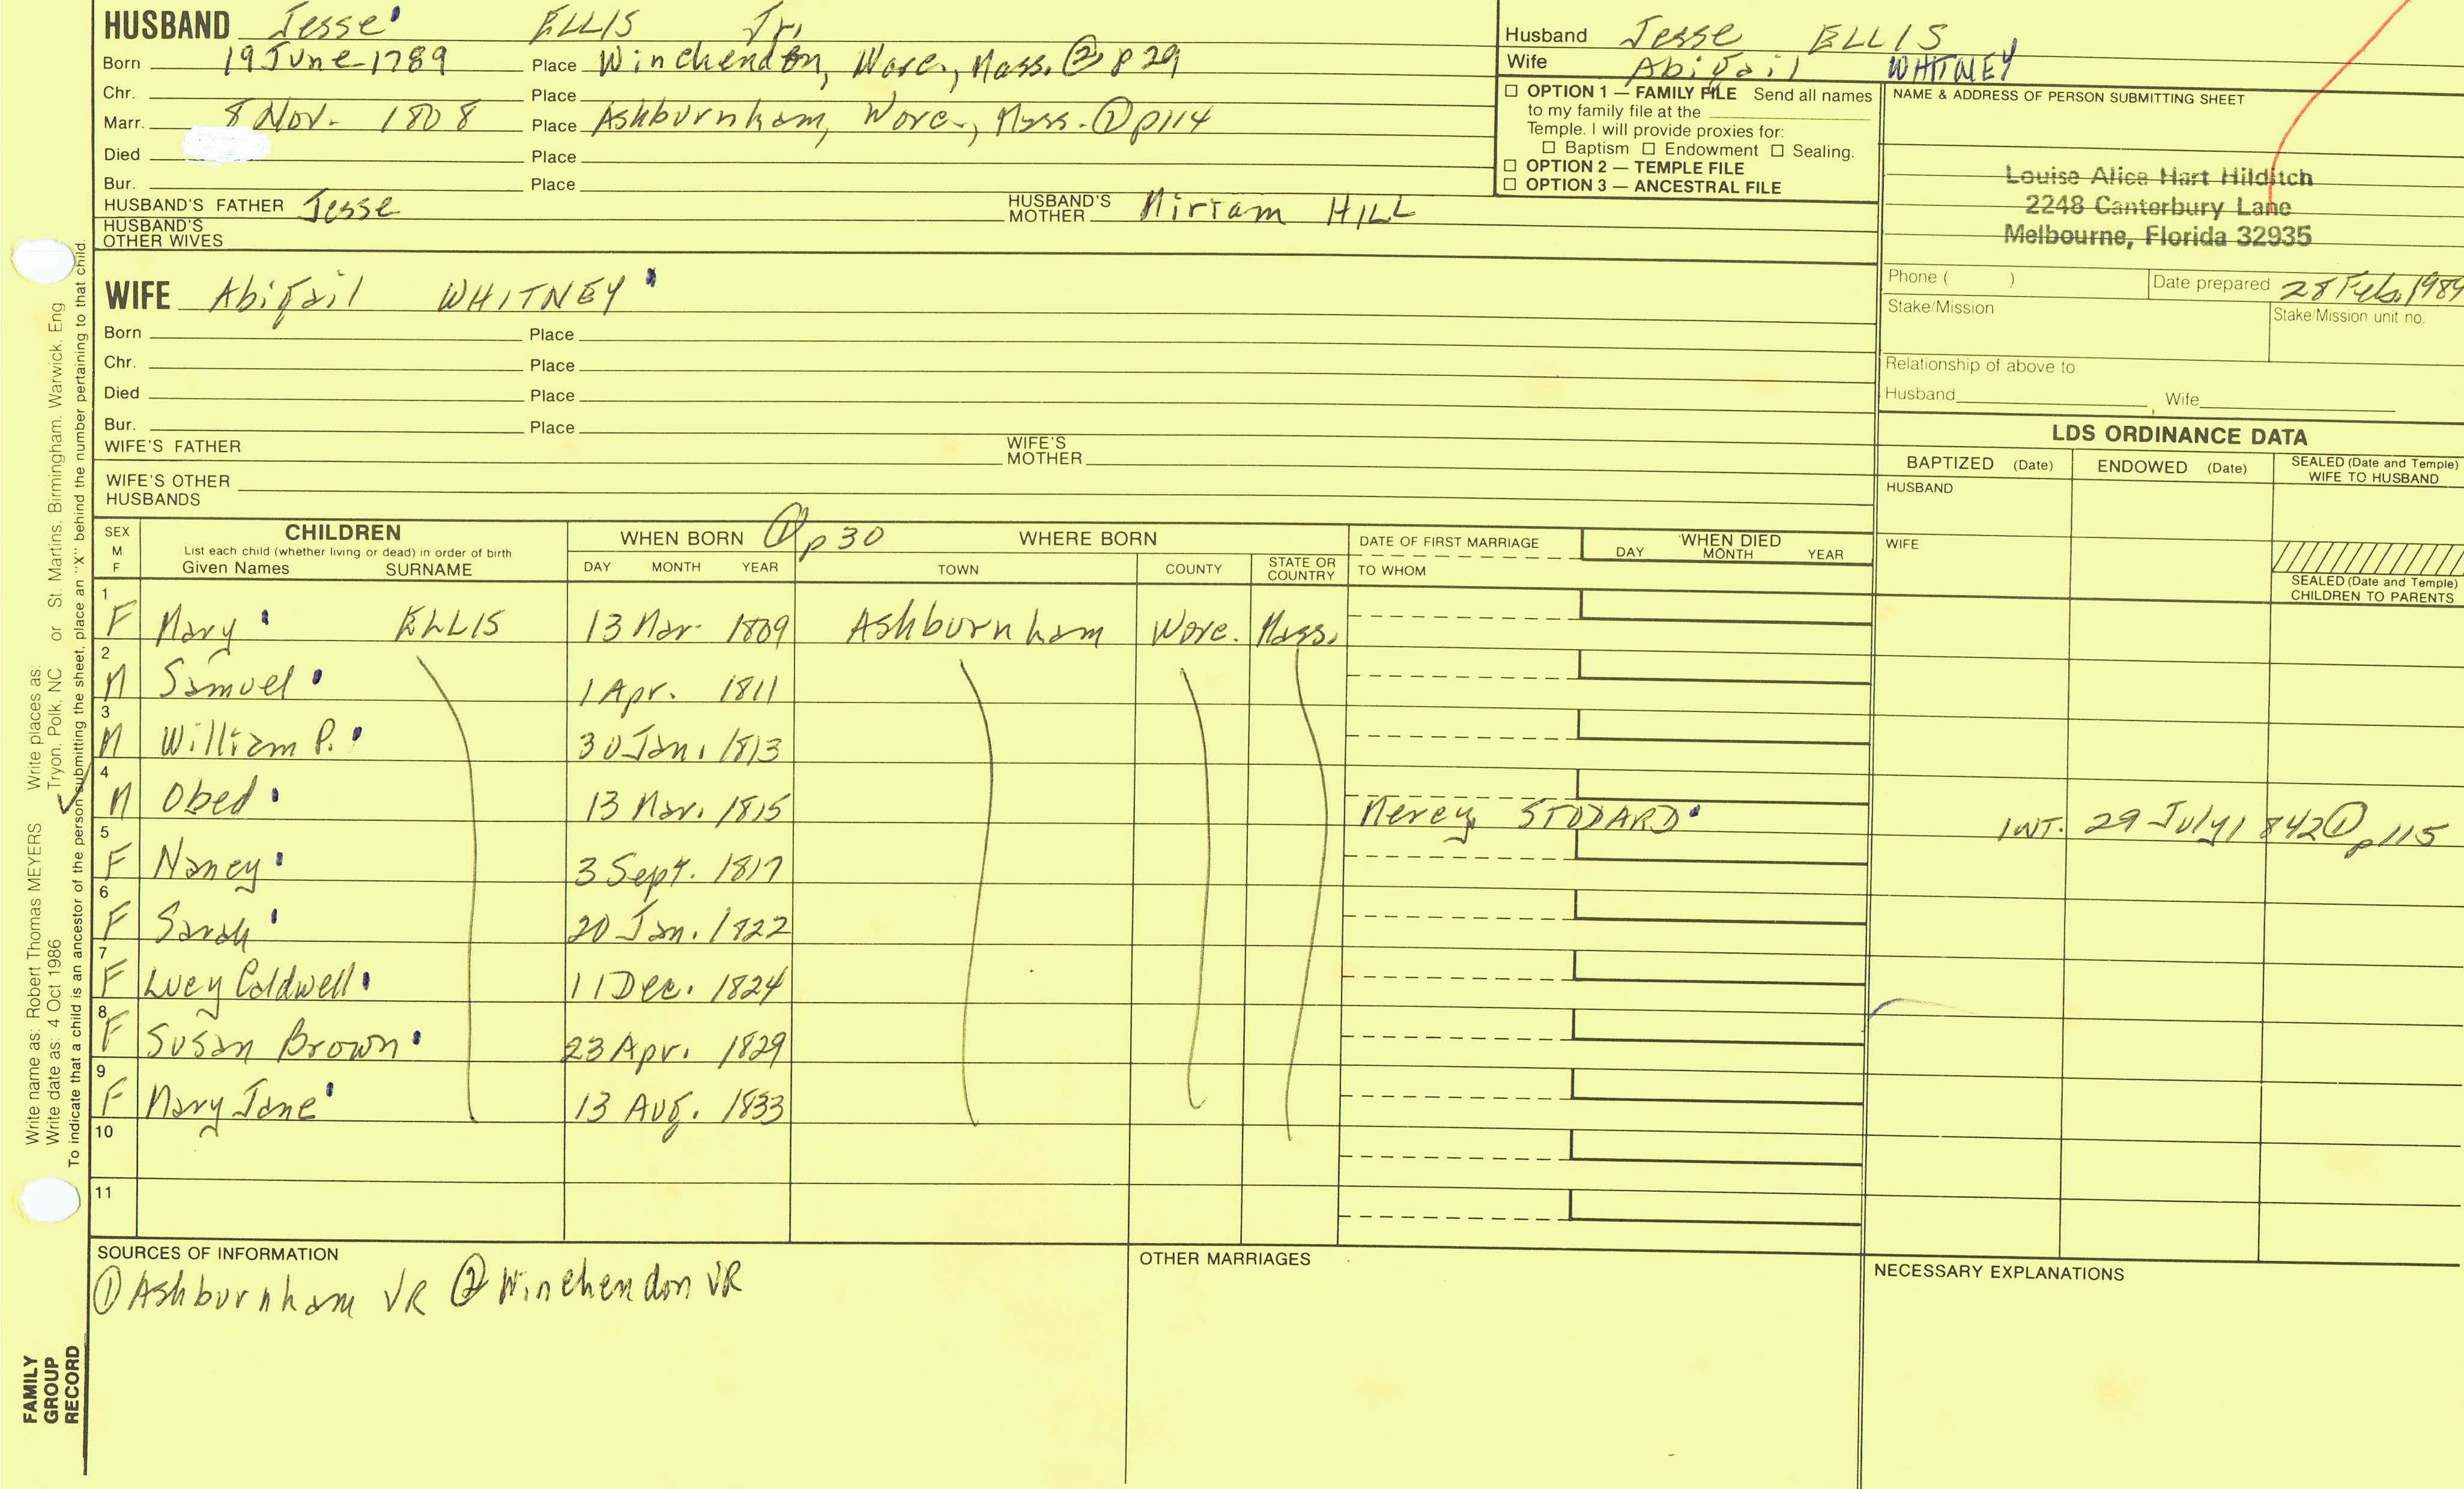 HUSBAND Jesse ELLIS Jr.
Born 19 June 1789 Place Winchendon, Worc., Mass. ② p 29
Chr. Place
Marr. 8 Nov. 1808 Place Ashburnham, Worc., Mass. ① p114
Died Place
Bur. Place
HUSBAND'S FATHER Jesse HUSBAND'S MOTHER Miriam HILL
HUSBAND'S OTHER WIVES
Husband Jesse ELLIS
Wife Abigail WHITNEY
☐ OPTION 1 — FAMILY FILE Send all names
to my family file at the
Temple. I will provide proxies for:
☐ Baptism ☐ Endowment ☐ Sealing.
☐ OPTION 2 — TEMPLE FILE
☐ OPTION 3 — ANCESTRAL FILE
NAME & ADDRESS OF PERSON SUBMITTING SHEET
Louise Alice Hart Hilditch
2248 Canterbury Lane
Melbourne, Florida 32935
Phone ( ) Date prepared 28 Feb. 1989
Stake/Mission Stake/Mission unit no.
Relationship of above to
Husband Wife
WIFE Abigail WHITNEY
Born Place
Chr. Place
Died Place
Bur. Place
WIFE'S FATHER WIFE'S MOTHER
WIFE'S OTHER HUSBANDS
LDS ORDINANCE DATA
BAPTIZED (Date) ENDOWED (Date) SEALED (Date and Temple) WIFE TO HUSBAND
HUSBAND
WIFE
SEALED (Date and Temple) CHILDREN TO PARENTS
SEX M F
CHILDREN
List each child (whether living or dead) in order of birth
Given Names SURNAME
WHEN BORN ① p 30 WHERE BORN
DAY MONTH YEAR TOWN COUNTY STATE OR COUNTRY
DATE OF FIRST MARRIAGE
TO WHOM
WHEN DIED
DAY MONTH YEAR
1 F Mary ELLIS 13 Mar 1809 Ashburnham Worc. Mass.
2 M Samuel 1 Apr. 1811
3 M William P. 30 Jan. 1813
4 M Obed 13 Mar. 1815 Mercy STODARD INT. 29 July 1842 ① p115
5 F Nancy 3 Sept. 1817
6 F Sarah 20 Jan. 1822
7 F Lucy Caldwell 11 Dec. 1824
8 F Susan Brown 23 Apr. 1829
9 F Mary Jane 13 Aug. 1833
10
11
SOURCES OF INFORMATION
① Ashburnham VR ② Winchendon VR
OTHER MARRIAGES
NECESSARY EXPLANATIONS
Write name as: Robert Thomas MEYERS Write places as: Tryon, Polk, NC or St. Martins, Birmingham, Warwick, Eng
Write date as: 4 Oct 1986
To indicate that a child is an ancestor of the person submitting the sheet, place an "X" behind the number pertaining to that child.
FAMILY
GROUP
RECORD